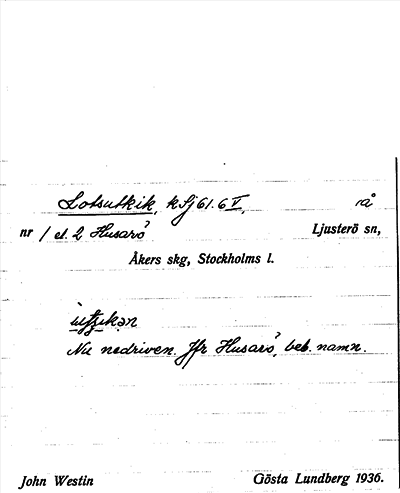 Lotsutkik, k Sj 61.6 V, å
nr 1 el. 2 Husarö Ljusterö sn,
Åkers skg, Stockholms l.
Nu nedriven. Jfr Husarö, beb. namn.
John Westin Gösta Lundberg 1936.